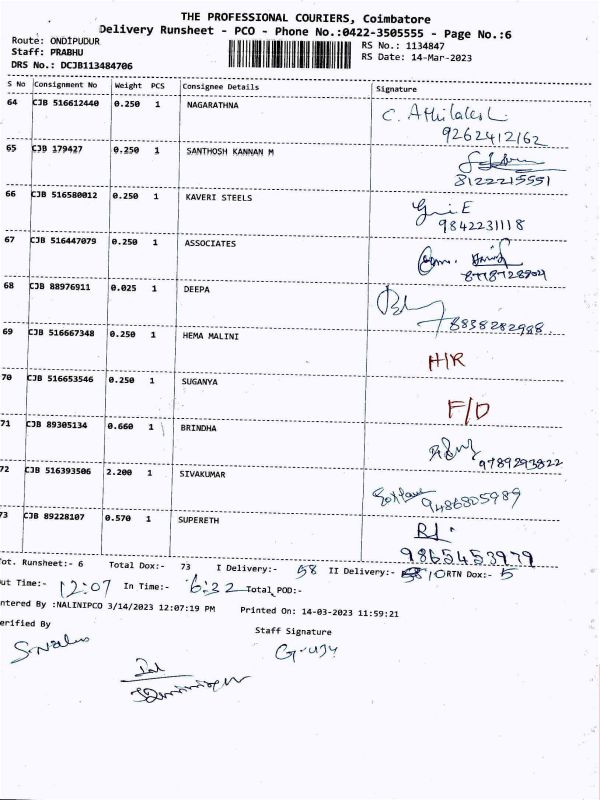 THE PROFESSIONAL COURIERS, Coimbatore
Delivery Runsheet - PCO - Phone No.:0422-3505555 - Page No.:6
Route: ONDIPUDUR
RS No.: 1134847
Staff: PRABHU
RS Date: 14-Mar-2023
DRS No.: DCJB113484706
S No Consignment No Weight PCS Consignee Details Signature
64 CJB 516612440 0.250 1 NAGARATHNA
9262412162
65 CJB 179427 0.250 1 SANTHOSH KANNAN M
8122215551
66 CJB 516580012 0.250 1 KAVERI STEELS
9842231118
67 CJB 516447079 0.250 1 ASSOCIATES
68 CJB 88976911 0.025 1 DEEPA
8838282988
69 CJB 516667348 0.250 1 HEMA MALINI
H/R
70 CJB 516653546 0.250 1 SUGANYA
F/D
71 CJB 89305134 0.660 1 BRINDHA
9789293822
72 CJB 516393506 2.200 1 SIVAKUMAR
9486805989
73 CJB 89228107 0.570 1 SUPERETH
9865453979
Tot. Runsheet:- 6 Total Dox:- 73 I Delivery:- 58 II Delivery:- 10 RTN Dox:- 5
Out Time:- 12:07 In Time:- 6:32 Total POD:-
ntered By :NALINIPCO 3/14/2023 12:07:19 PM Printed On: 14-03-2023 11:59:21
erified By
Staff Signature